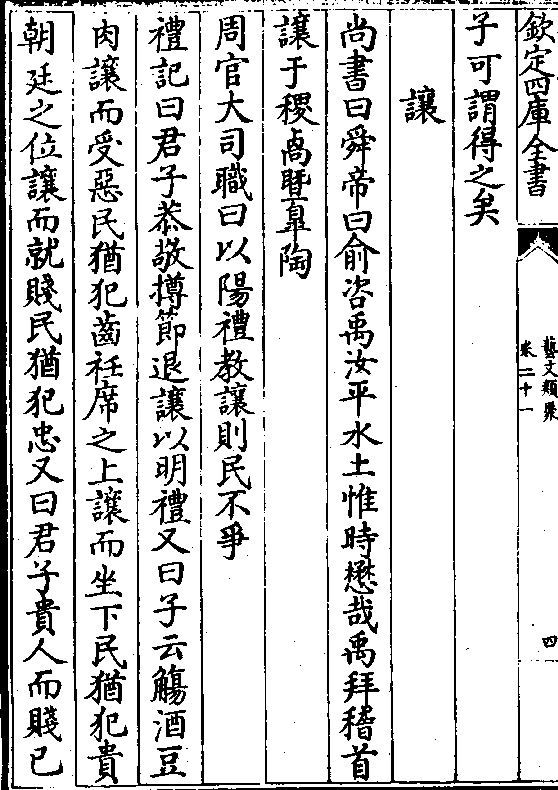 欽定四庫全書
藝文類聚
卷二十一
四
子可謂得之矣
讓
尚書曰舜帝曰俞咨禹汝平水土惟時懋哉禹拜稽首
讓于稷卨暨皐陶
周官大司職曰以陽禮教讓則民不爭
禮記曰君子恭敬撙節退讓以明禮又曰子云觴酒豆
肉讓而受惡民猶犯齒衽席之上讓而坐下民猶犯貴
朝廷之位讓而就賤民猶犯忠又曰君子貴人而賤已